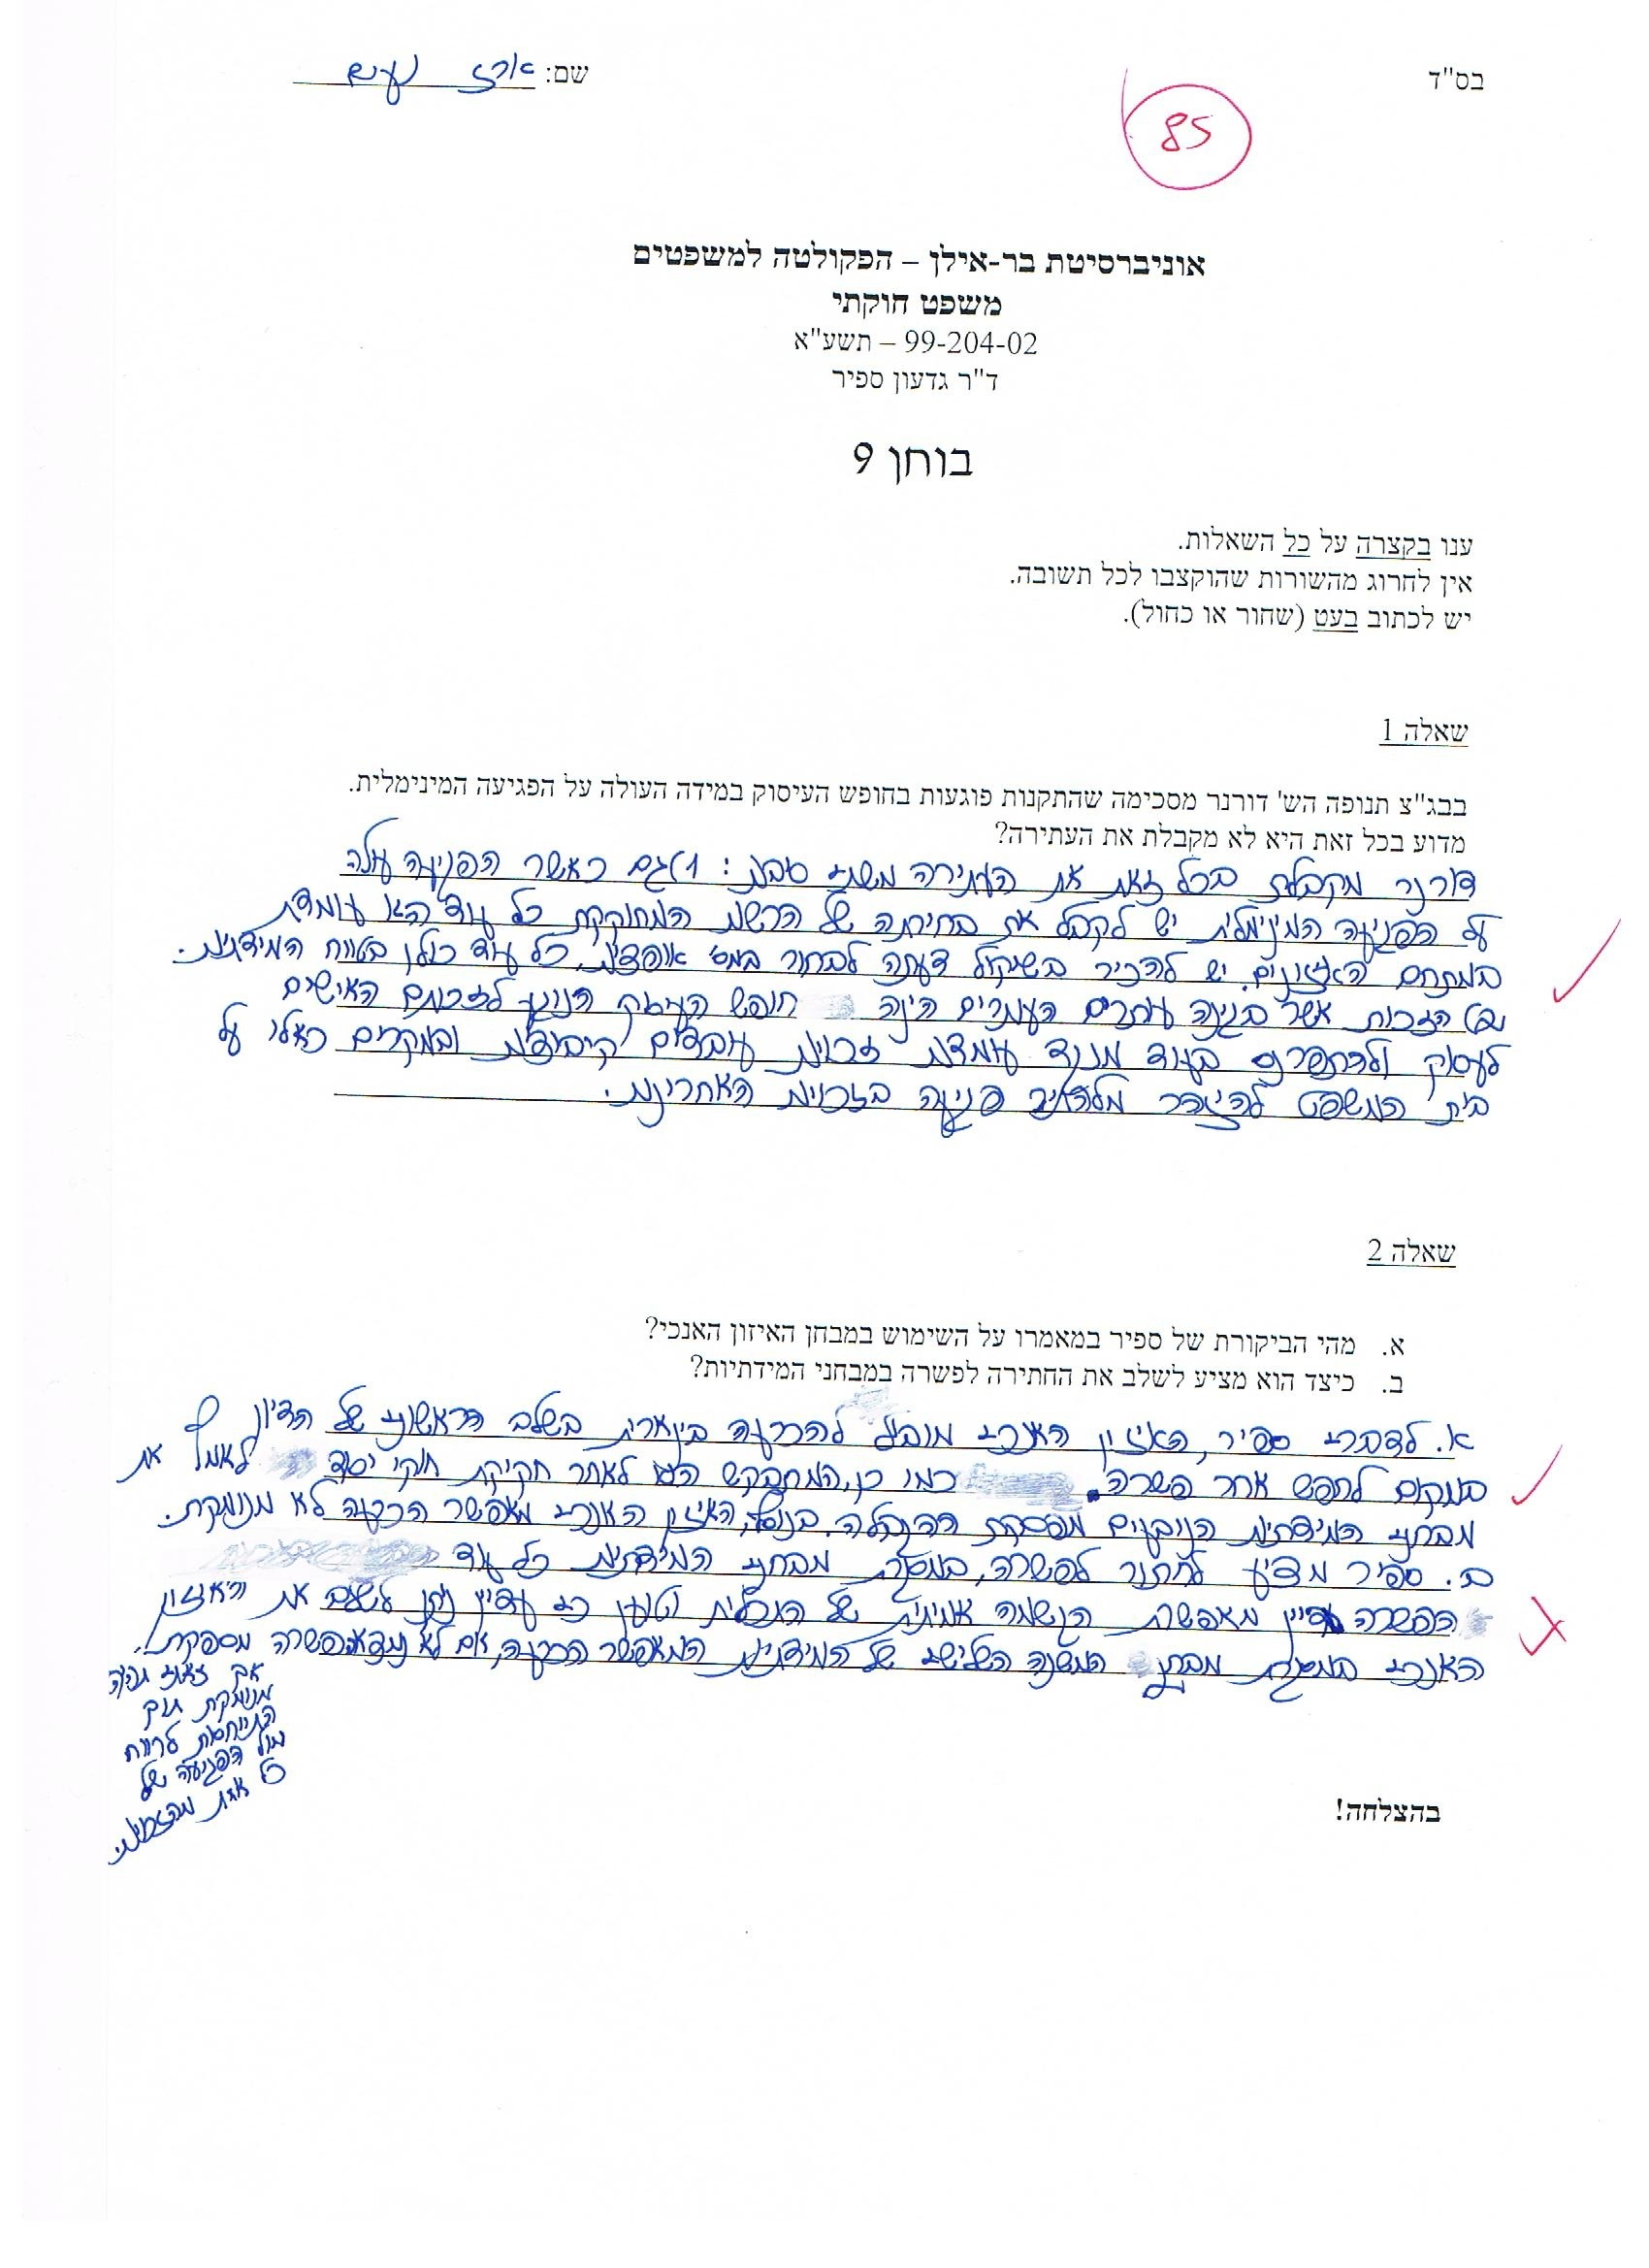 בס"ד
שם: ארז נעים
85
אוניברסיטת בר-אילן – הפקולטה למשפטים
משפט חוקתי
99-204-02 – תשע"א
ד"ר גדעון ספיר
בוחן 9
ענו בקצרה על כל השאלות.
אין לחרוג מהשורות שהוקצבו לכל תשובה.
יש לכתוב בעט (שחור או כחול).
שאלה 1
בבג"צ תנופה הש' דורנר מסכימה שהתקנות פוגעות בחופש העיסוק במידה העולה על הפגיעה המינימלית.
מדוע בכל זאת היא לא מקבלת את העתירה?
דורנר מקבלת בכל זאת את העתירה משתי סיבות: 1) גם כאשר הפגיעה עולה
על הפגיעה המינימלית יש לקבל את בחירתה של הרשות המחוקקת כל עוד היא עומדת
במתחם האיזונים. יש להכיר בשיקול דעתה לבחור במס' אופציות, כל עוד כולן בטווח המידתיות.
הזכות אשר בגינה עותרים העותרים הינה חופש העיסוק הנוגע לזכותם האישית
לעסוק ולהתפרנס בעוד מנגד עומדות זכויות עובדים קיבוציות ובמקרים כאלו על
בית המשפט להיזהר מלהתיר פגיעה בזכויות האחרונות.
שאלה 2
א. מהי הביקורת של ספיר במאמרו על השימוש במבחן האיזון האנכי?
ב. כיצד הוא מציע לשלב את החתירה לפשרה במבחני המידתיות?
א. לדברי ספיר, האיזון האנכי מוביל להכרעה בינארית בשלב הראשוני של הדיון
במקום לחפש אחר פשרה. כמו כן, המתבקש הוא לאחר חקיקת חוקי יסוד לאמץ את
מבחני המידתיות הנובעים מפסקת ההגבלה. בנוסף, האיזון האנכי מאפשר הכרעה לא מנומקת.
ב. ספיר מציע לחתור לפשרה, במסגרת מבחני המידתיות כל עוד
הפשרה עדיין מאפשרת הגשמה אמיתית של התכלית וטוען כי עדיין ניתן לשלב את האיזון
האנכי במסגרת מבחן המשנה השלישי של המידתיות המאפשר הכרעה, אם לא נמצאה פשרה מספקת.
אך זאת תהיה
מנומקת תוך
התייחסות לרווח
מול הפגיעה של
כל אחת מהזכויות.
בהצלחה!